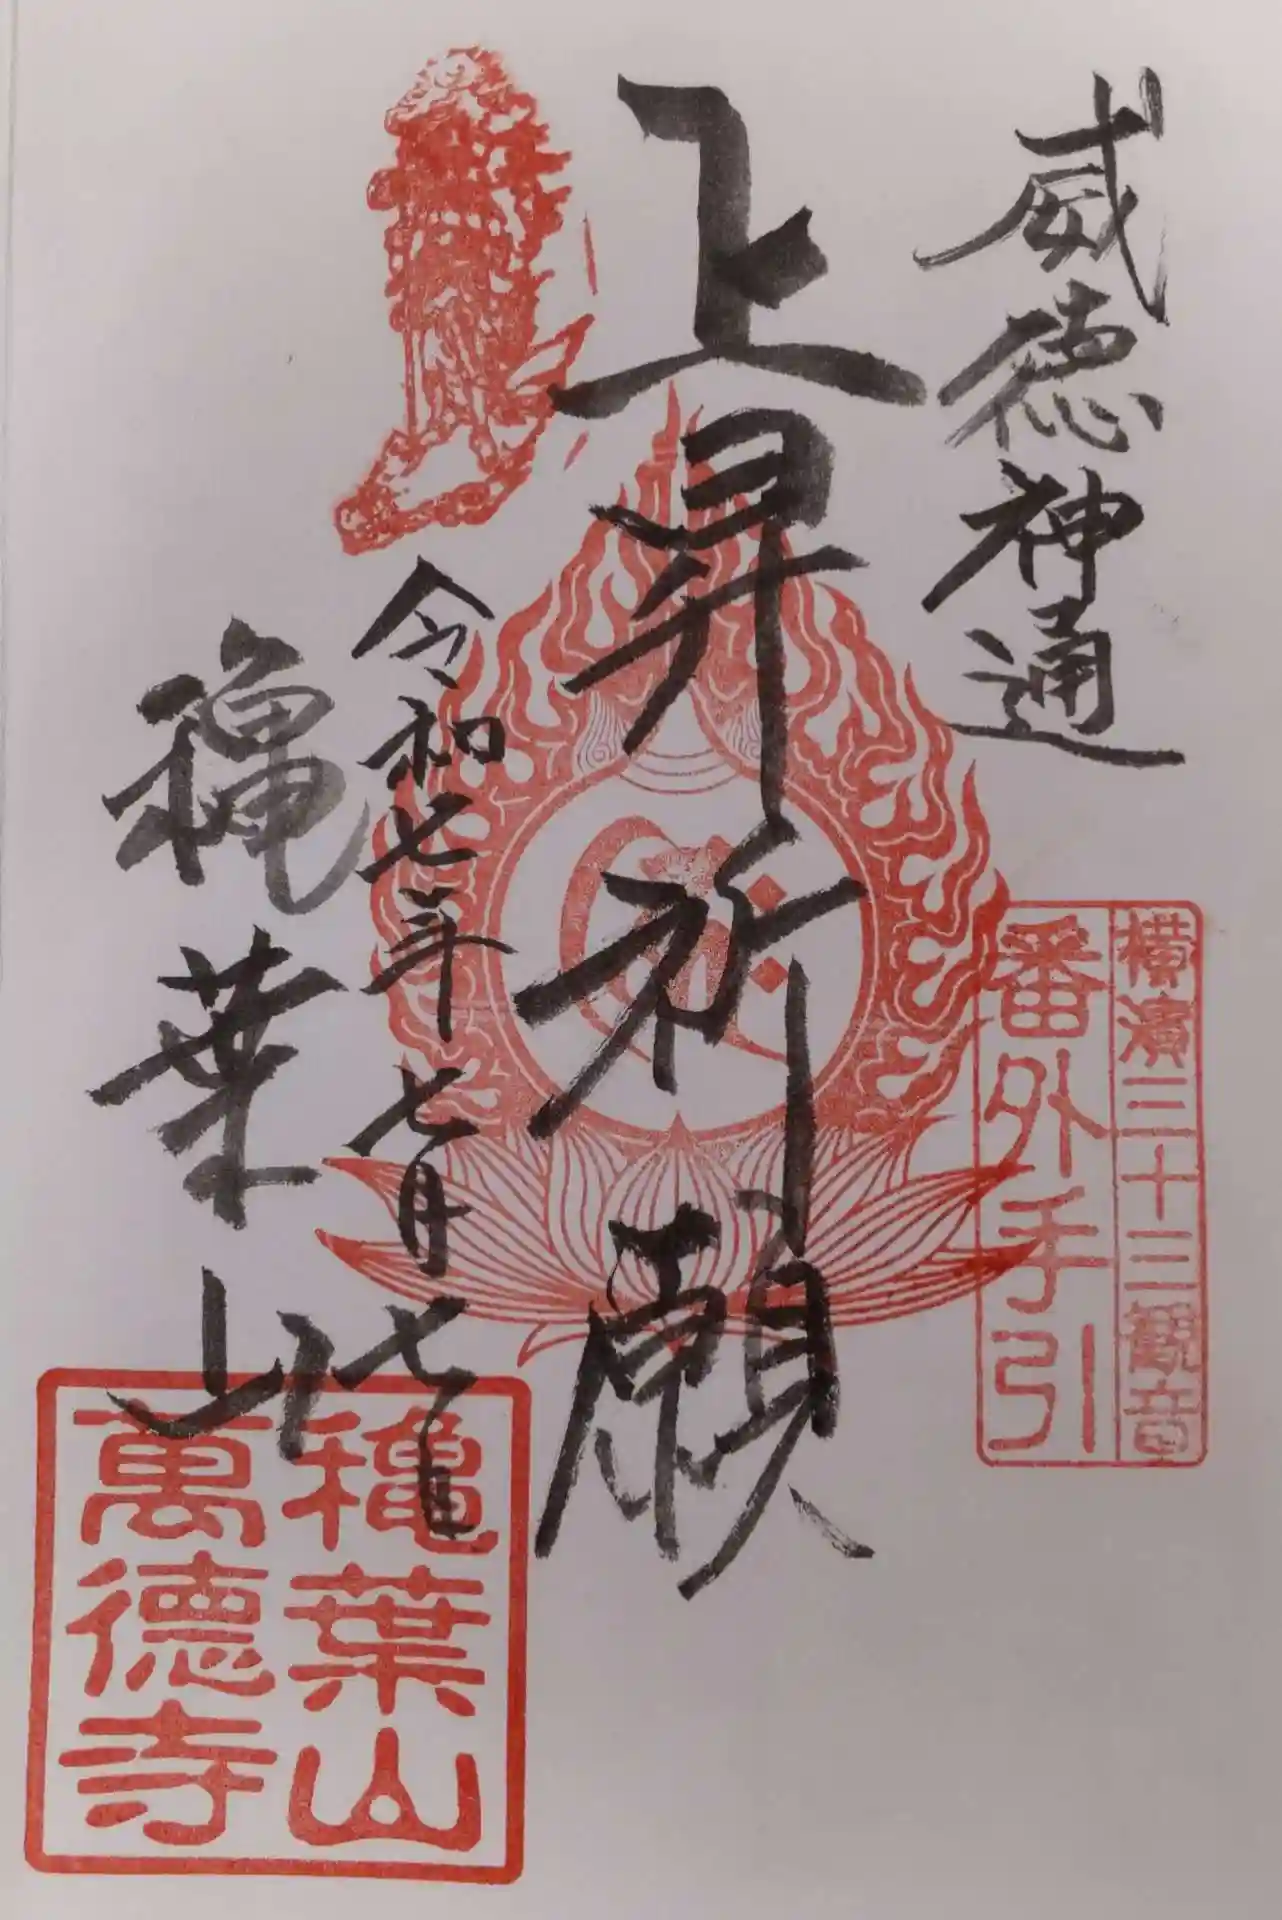 威徳神通
横濱三十三観音
番外手引
上昇祈願
令和七年七月七日
穐葉山
穐葉山
萬徳寺